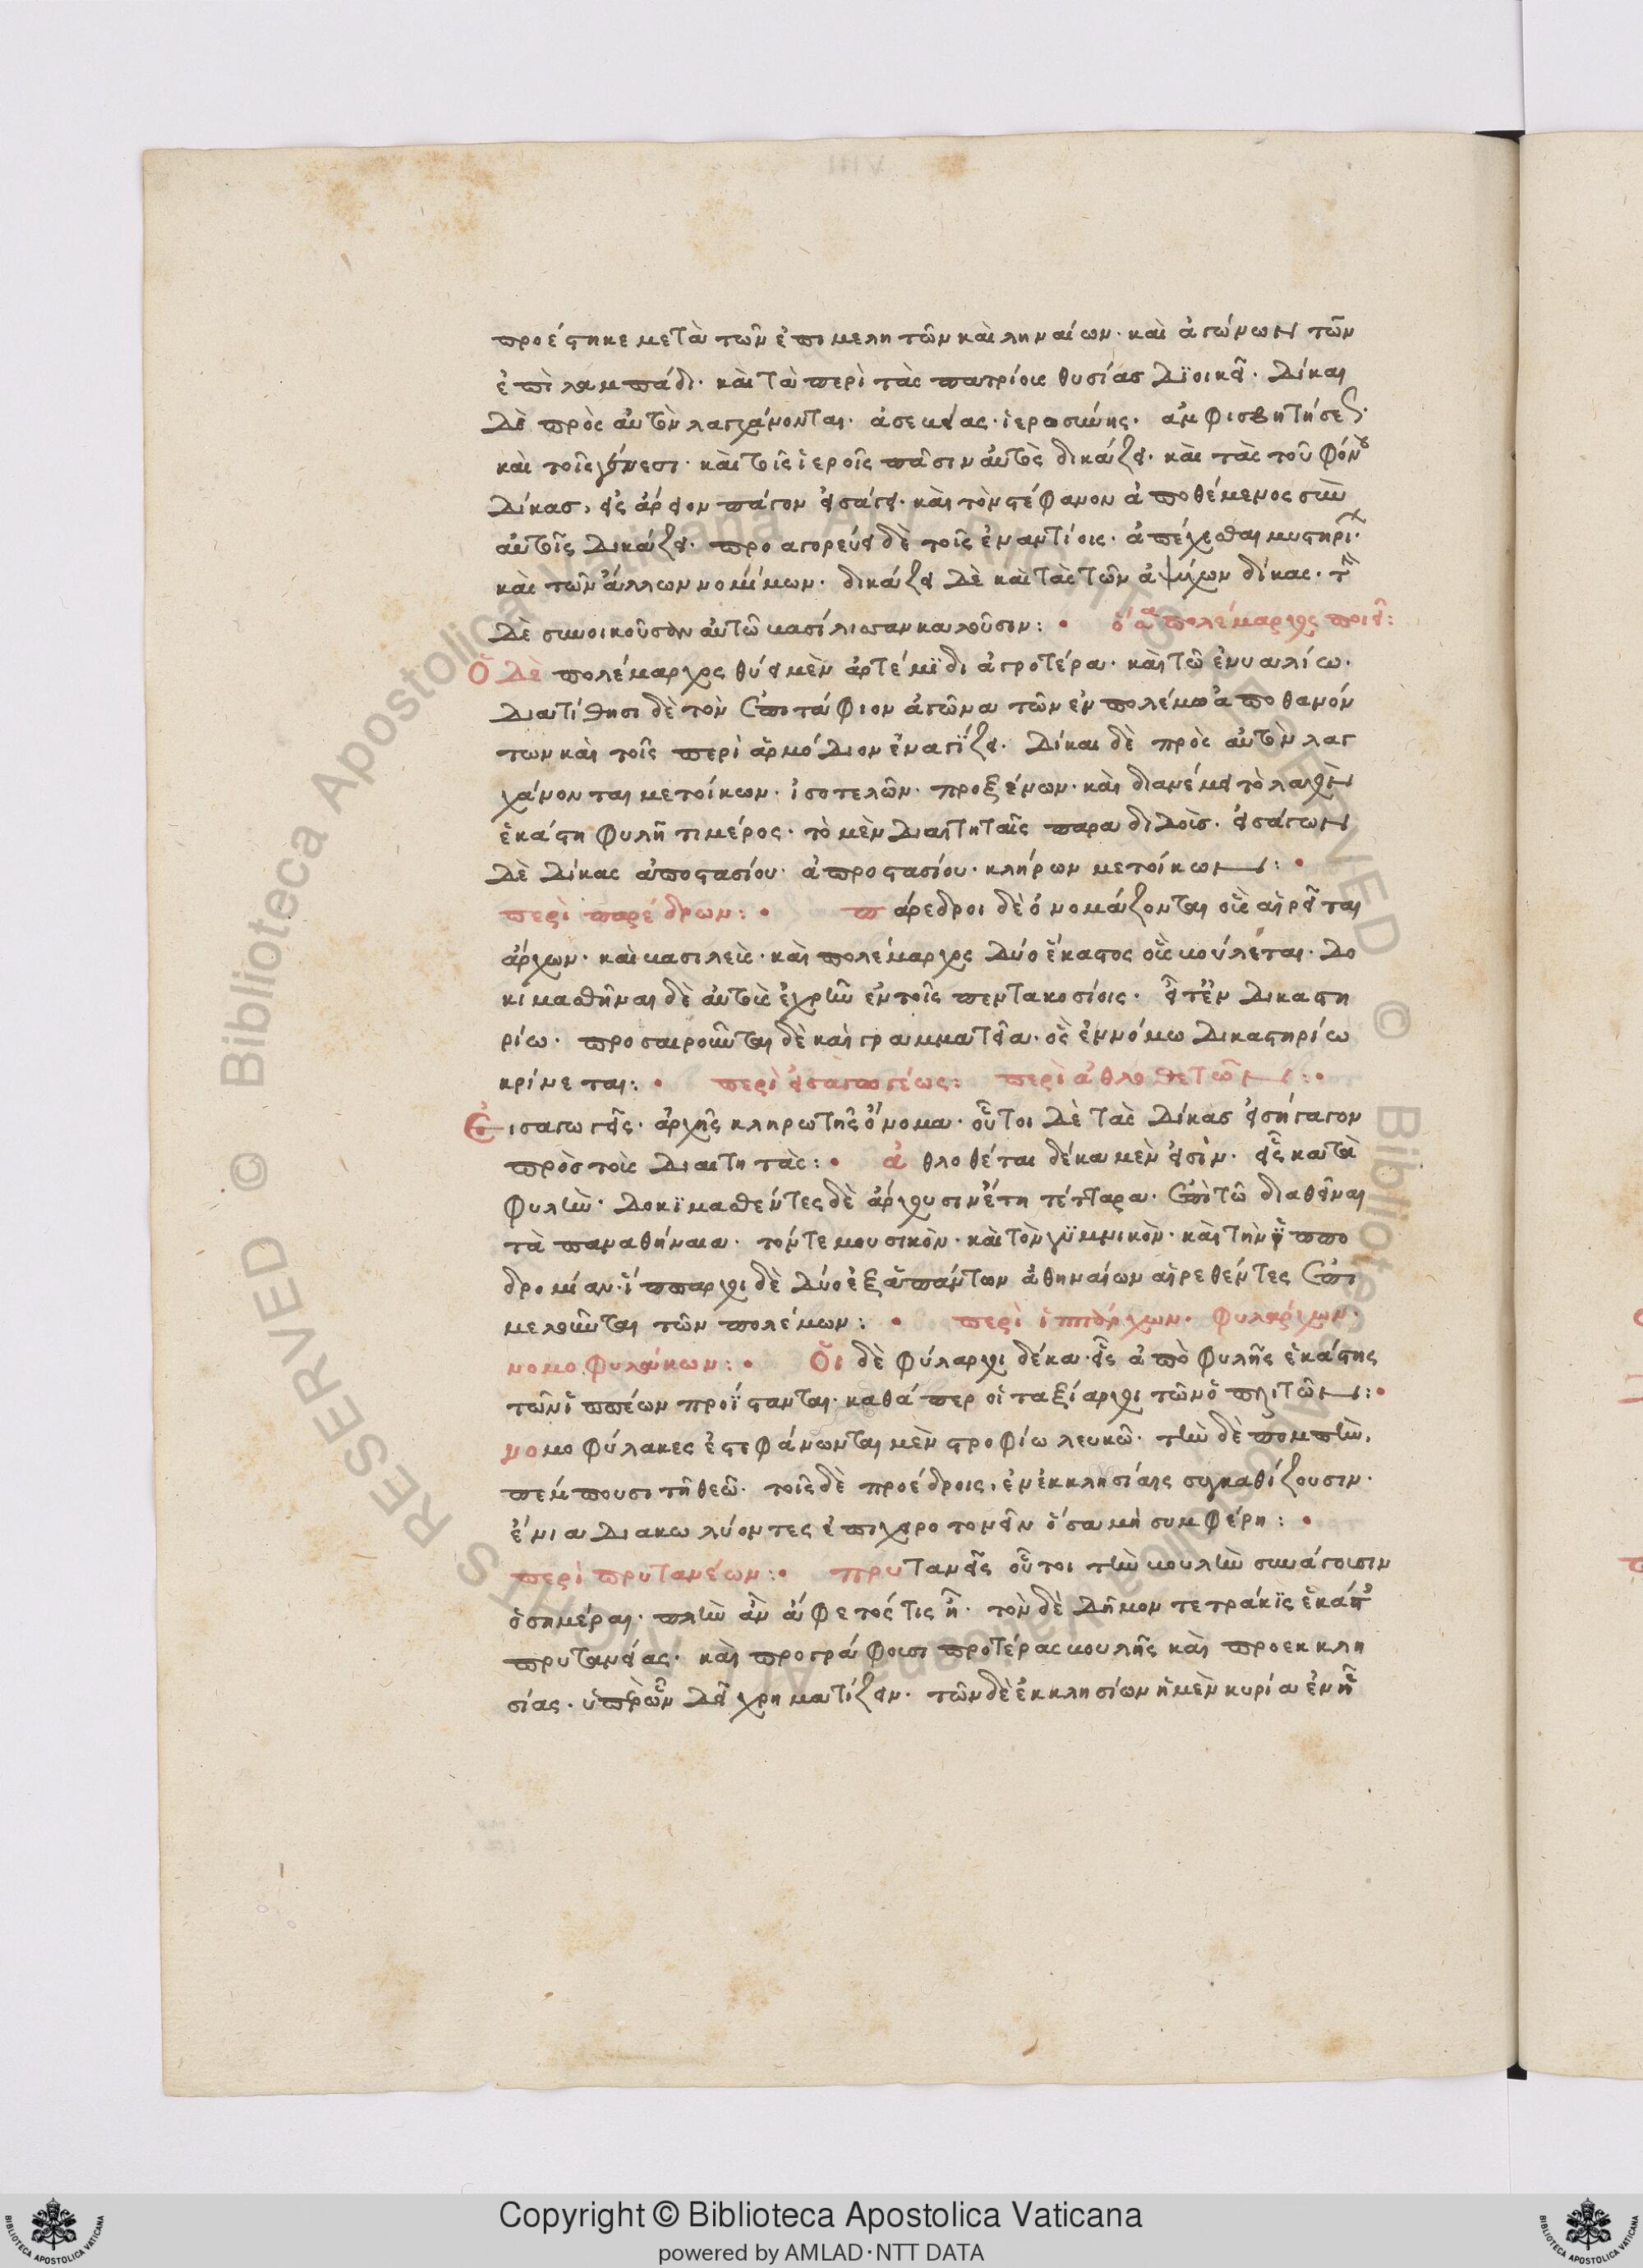 προέστηκε μετὰ τῶν ἐπιμελητῶν καὶ ληναίων· καὶ ἀγώνων τῶν
ἐπὶ λαμπάδι· καὶ τὰ περὶ τὰς πατρίους θυσίας διοικεῖ· δίκαι
δὲ πρὸς αὐτὸν λαγχάνονται· ἀσεβείας· ἱερωσύνης· ἀμφισβητήσεως·
καὶ τοῖς γένεσι· καὶ τοῖς ἱεροῖς πᾶσιν αὐτὸς δικάζει· καὶ τὰς τοῦ φόνου
δίκας, εἰς ἄρειον πάγον εἰσάγει· καὶ τὸν στέφανον ἀποθέμενος σὺν
αὐτοῖς δικάζει· προαγορεύει δὲ τοῖς ἐναντίοις· ἀπέχεσθαι μυστηρίων·
καὶ τῶν ἄλλων νομίμων· δικάζει δὲ καὶ τὰς τῶν ἀψύχων δίκας· τὴν
δὲ συνοικοῦσαν αὐτῶ βασίλισσαν καλοῦσιν: • ὅσα πολέμαρχος ποιεῖ:
Ὁ δὲ πολέμαρχος θύει μὲν ἀρτέμϊδι ἀγροτέρα· καὶ τῶ ἐνυαλίω·
διατίθησι δὲ τὸν ἐπιτάφιον ἀγῶνα τῶν ἐν πολέμω ἀποθανόν
των καὶ τοῖς περὶ ἁρμόδιον ἐναγΐζει· δίκαι δὲ πρὸς αὐτὸν λαγ
χάνονται μετοίκων· ἰσοτελῶν· προξένων· καὶ διανέμει τὸ λαχὸν
ἑκάστη φυλῆ τι μέρος· τὸ μὲν διαιτηταῖς παραδιδοὺς· εἰσάγων
δὲ δίκας ἀποστασίου· ἀπροστασίου· κλήρων μετοίκων: •
περὶ παρέδρων: • παρεδροι δὲ ὀνομάζονται οὓς αἱρεῖται
ἄρχων· καὶ βασιλεὺς· καὶ πολέμαρχος δύο ἕκαστος οὓς βούλεται· δο
κιμασθῆναι δὲ αὐτοὺς ἐχρῆν ἐν τοῖς πεντακοσίοις· εἶτ' ἐν δικαστη
ρίω· προσαιροῦνται δὲ καὶ γραμματέα· ὃς ἐν νόμω δικαστηρίω
κρίνεται: • περὶ εἰσαγωγέως: περὶ ἀθλοθετῶν: •
Εἰσαγωγεῖς· ἀρχῆς κληρωτῆς ὄνομα· οὗτοι δὲ τὰς δίκας εἰσήγαγον
πρὸς τοὺς διαιτητὰς: • ἀθλοθέται δέκα μὲν εἰσὶν· εἷς κατὰ
φυλὴν· δοκϊμασθέντες δὲ ἄρχουσιν ἔτη τέτταρα· ἐπὶ τῶ διαθεῖναι
τὰ παναθήναια· τόν τε μουσικὸν· καὶ τὸν γϋμνικὸν· καὶ τὴν ἱππο
δρομίαν· ἵππαρχοι δὲ δύο ἐξ ἁπάντων ἀθηναίων αἱρεθέντες ἐπι
μελοῦνται τῶν πολέμων: • περὶ ἱππάρχων· φυλάρχων·
νομοφυλάκων: • Οἱ δὲ φύλαρχοι δέκα· εἷς ἀπὸ φυλῆς ἑκάστης
τῶν ἱππέων προΐστανται· καθάπερ οἱ ταξίαρχοι τῶν ὁπλιτῶν: •
νομοφύλακες ἐστεφάνωνται μὲν στροφίω λευκῶ· τὴν δὲ πομπὴν,
πέμπουσι τῆ θεῶ· τοῖς δὲ προέδροις, ἐν ἐκκλησίαις συγκαθίζουσιν·
ἔνια διακωλύοντες ἐπιχειροτονεῖν ὅσα μὴ συμφέρη: •
περὶ πρυτανέων: • πρυτανεῖς οὗτοι τὴν βουλὴν συνάγουσιν
ὁσημέραι· πλὴν ἂν ἄφετός τις ἦ· τὸν δὲ δῆμον τετράκϊς ἑκάστης
πρυτανείας· καὶ προγράφουσι προτέρας βουλῆς καὶ προεκκλη
σίας· ὑπὲρ ὧν δεῖ χρηματίζειν· τῶν δὲ ἐκκλησίων ἡ μὲν κυρία ἐν ἧ
© Biblioteca Apostolica Vaticana ALL RIGHTS RESERVED
Copyright © Biblioteca Apostolica Vaticana
powered by AMLAD·NTT DATA
BIBLIOTECA APOSTOLICA VATICANA
BIBLIOTECA APOSTOLICA VATICANA